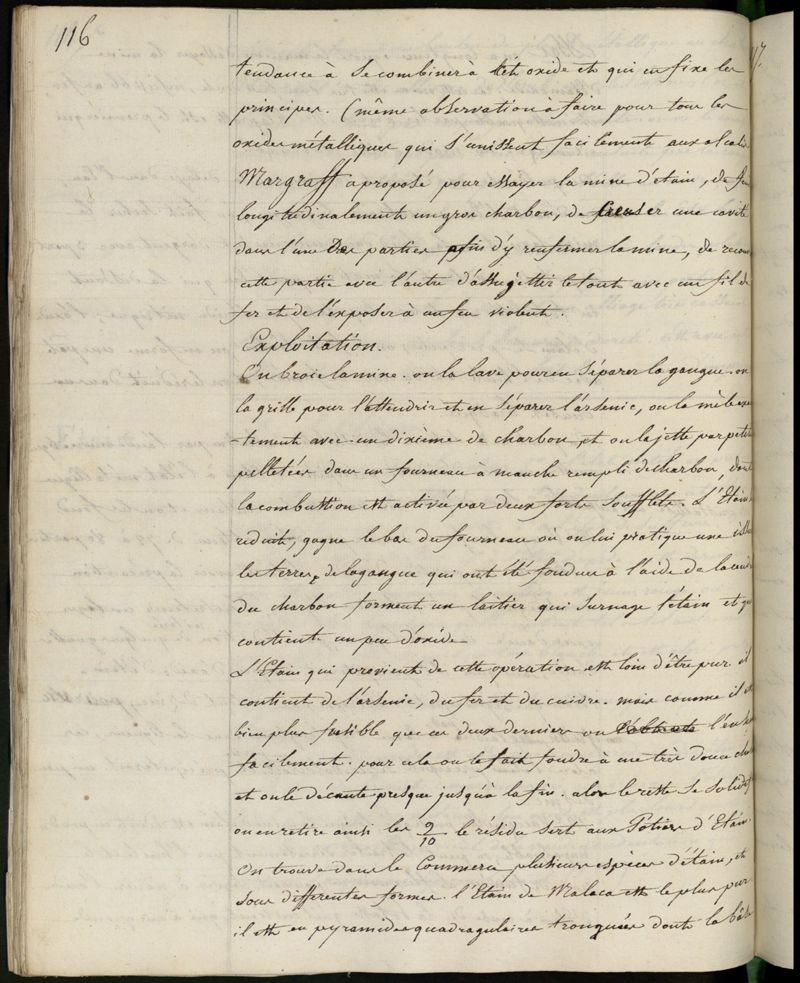 116
tendance à se combiner à cet oxide et qui en fixe les
principes. (même observation à faire pour tous les
oxides métalliques qui s'unissent facilement aux alcalis
Margraff a proposé pour essayer la mine d'étain, de
longitudinalement un gros charbon, de creuser une cavité
dans l'une des parties afin d'y renfermer la mine, de
cette partie avec l'autre d'assujettir le tout avec un fil de
fer et de l'exposer à un feu violent.
Exploitation.
On broie la mine. on la lave pour en séparer la gangue. on
la grille pour l'attendrir et en séparer l'arsenic, on la mêle
-tement avec un dixième de charbon, et on la jette par petites
pelletées dans un fourneau à manche rempli de charbon, dont
la combustion est activée par deux forts soufflets. L'Etain
réduit, gagne le bas du fourneau où on lui pratique une issue
les terres de la gangue qui ont été fondues à l'aide de la cendre
du charbon forment un laitier qui surnage l'étain et qui
contient un peu d'oxide
L'Etain qui provient de cette opération est loin d'être pur il
contient de l'arsenic, du fer et du cuivre. mais comme il est
bien plus fusible que ces deux derniers on l'en
facilement. pour cela on le fait fondre à une très douce
et on le décante presque jusqu'à la fin. alors le reste se solidifie
on en retire ainsi les 9/10 le résidu sert aux Potiers d'Etain.
On trouve dans le Commerce plusieurs espèces d'étain, et
sous differentes formes. l'Etain de Malaca est le plus pur
il est en pyramides quadragulaires tronquées dont la base
117.